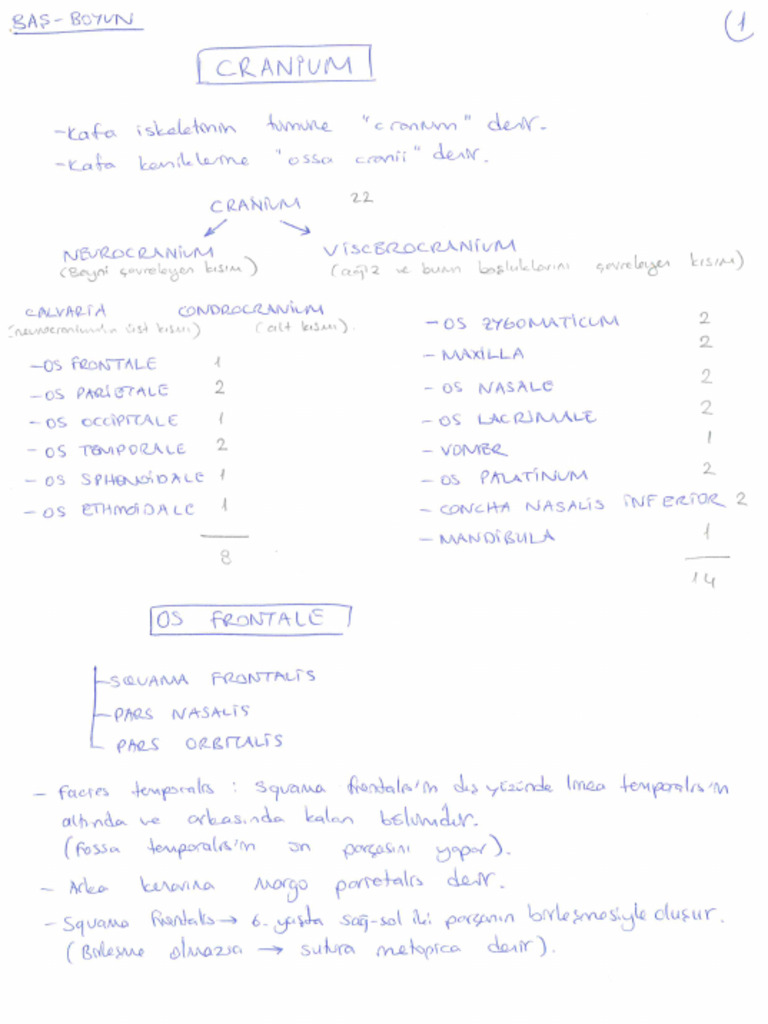 BAŞ-BOYUN
1
CRANİUM
-Kafa iskeletinin tümüne "cranium" denir.
-Kafa kemiklerine "ossa cranii" denir.
CRANİUM 22
NEUROCRANİUM
(Beyni çevreleyen kısım)
VİSCEROCRANİUM
(ağız ve burun boşluklarını çevreleyen kısım)
CALVARİA CONDROCRANİUM
(neurocraniumun üst kısmı) (alt kısım).
-OS FRONTALE 1
-OS PARİETALE 2
-OS OCCİPİTALE 1
-OS TEMPORALE 2
-OS SPHENOİDALE 1
-OS ETHMOİDALE 1
8
-OS ZYGOMATİCUM 2
-MAXİLLA 2
-OS NASALE 2
-OS LACRİMALE 2
-VOMER 1
-OS PALATİNUM 2
-CONCHA NASALİS İNFERİOR 2
-MANDİBULA 1
14
OS FRONTALE
-SQUAMA FRONTALİS
-PARS NASALİS
PARS ORBİTALİS
- Facies temporalis : Squama frontalis'in dış yüzünde linea temporalis'in
altında ve arkasında kalan bölümdür.
(Fossa temporalis'in ön parçasını yapar).
- Arka kenarına margo parietalis denir.
- Squama frontalis → 6. yaşta sağ-sol iki parçanın birleşmesiyle oluşur.
(Birleşme olmazsa → sutura metopica denir).